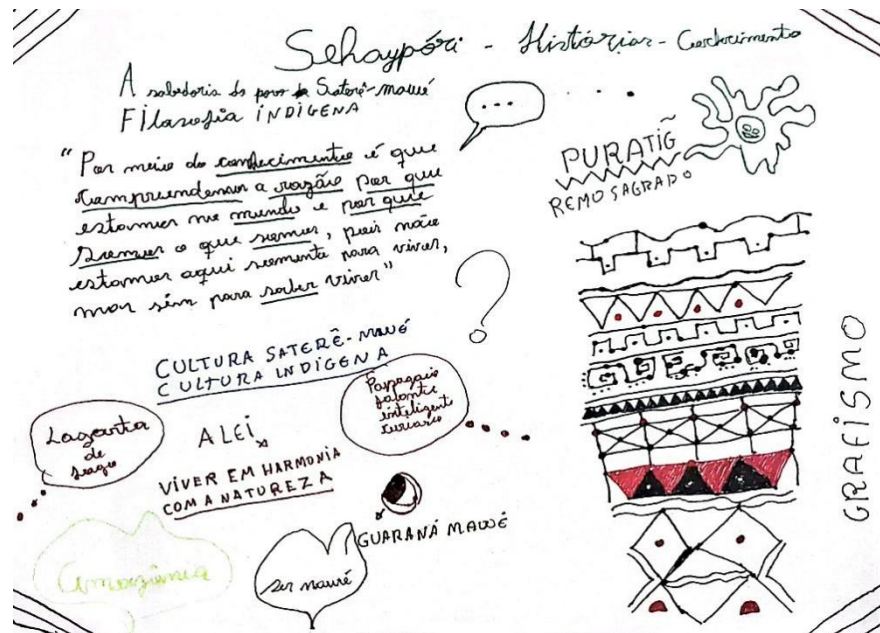 Sehaypóri - Histórias - Conhecimento
A sabedoria do povo Sateré-mawé
FILOSOFIA INDÍGENA
"Por meio do conhecimento é que
compreendemos a razão por que
estamos no mundo e por que
somos o que somos, pois não
estamos aqui somente para viver,
mas sim para saber viver"
...
PURATIG̃
REMO SAGRADO
?
CULTURA SATERÊ-MAUÉ
CULTURA INDÍGENA
Lagarta
de
fogo
A LEI
VIVER EM HARMONIA
COM A NATUREZA
Papagaio
falante
inteligente
curioso
GUARANÁ MAWÉ
Amazônia
Ser mawé
GRAFÍSMO